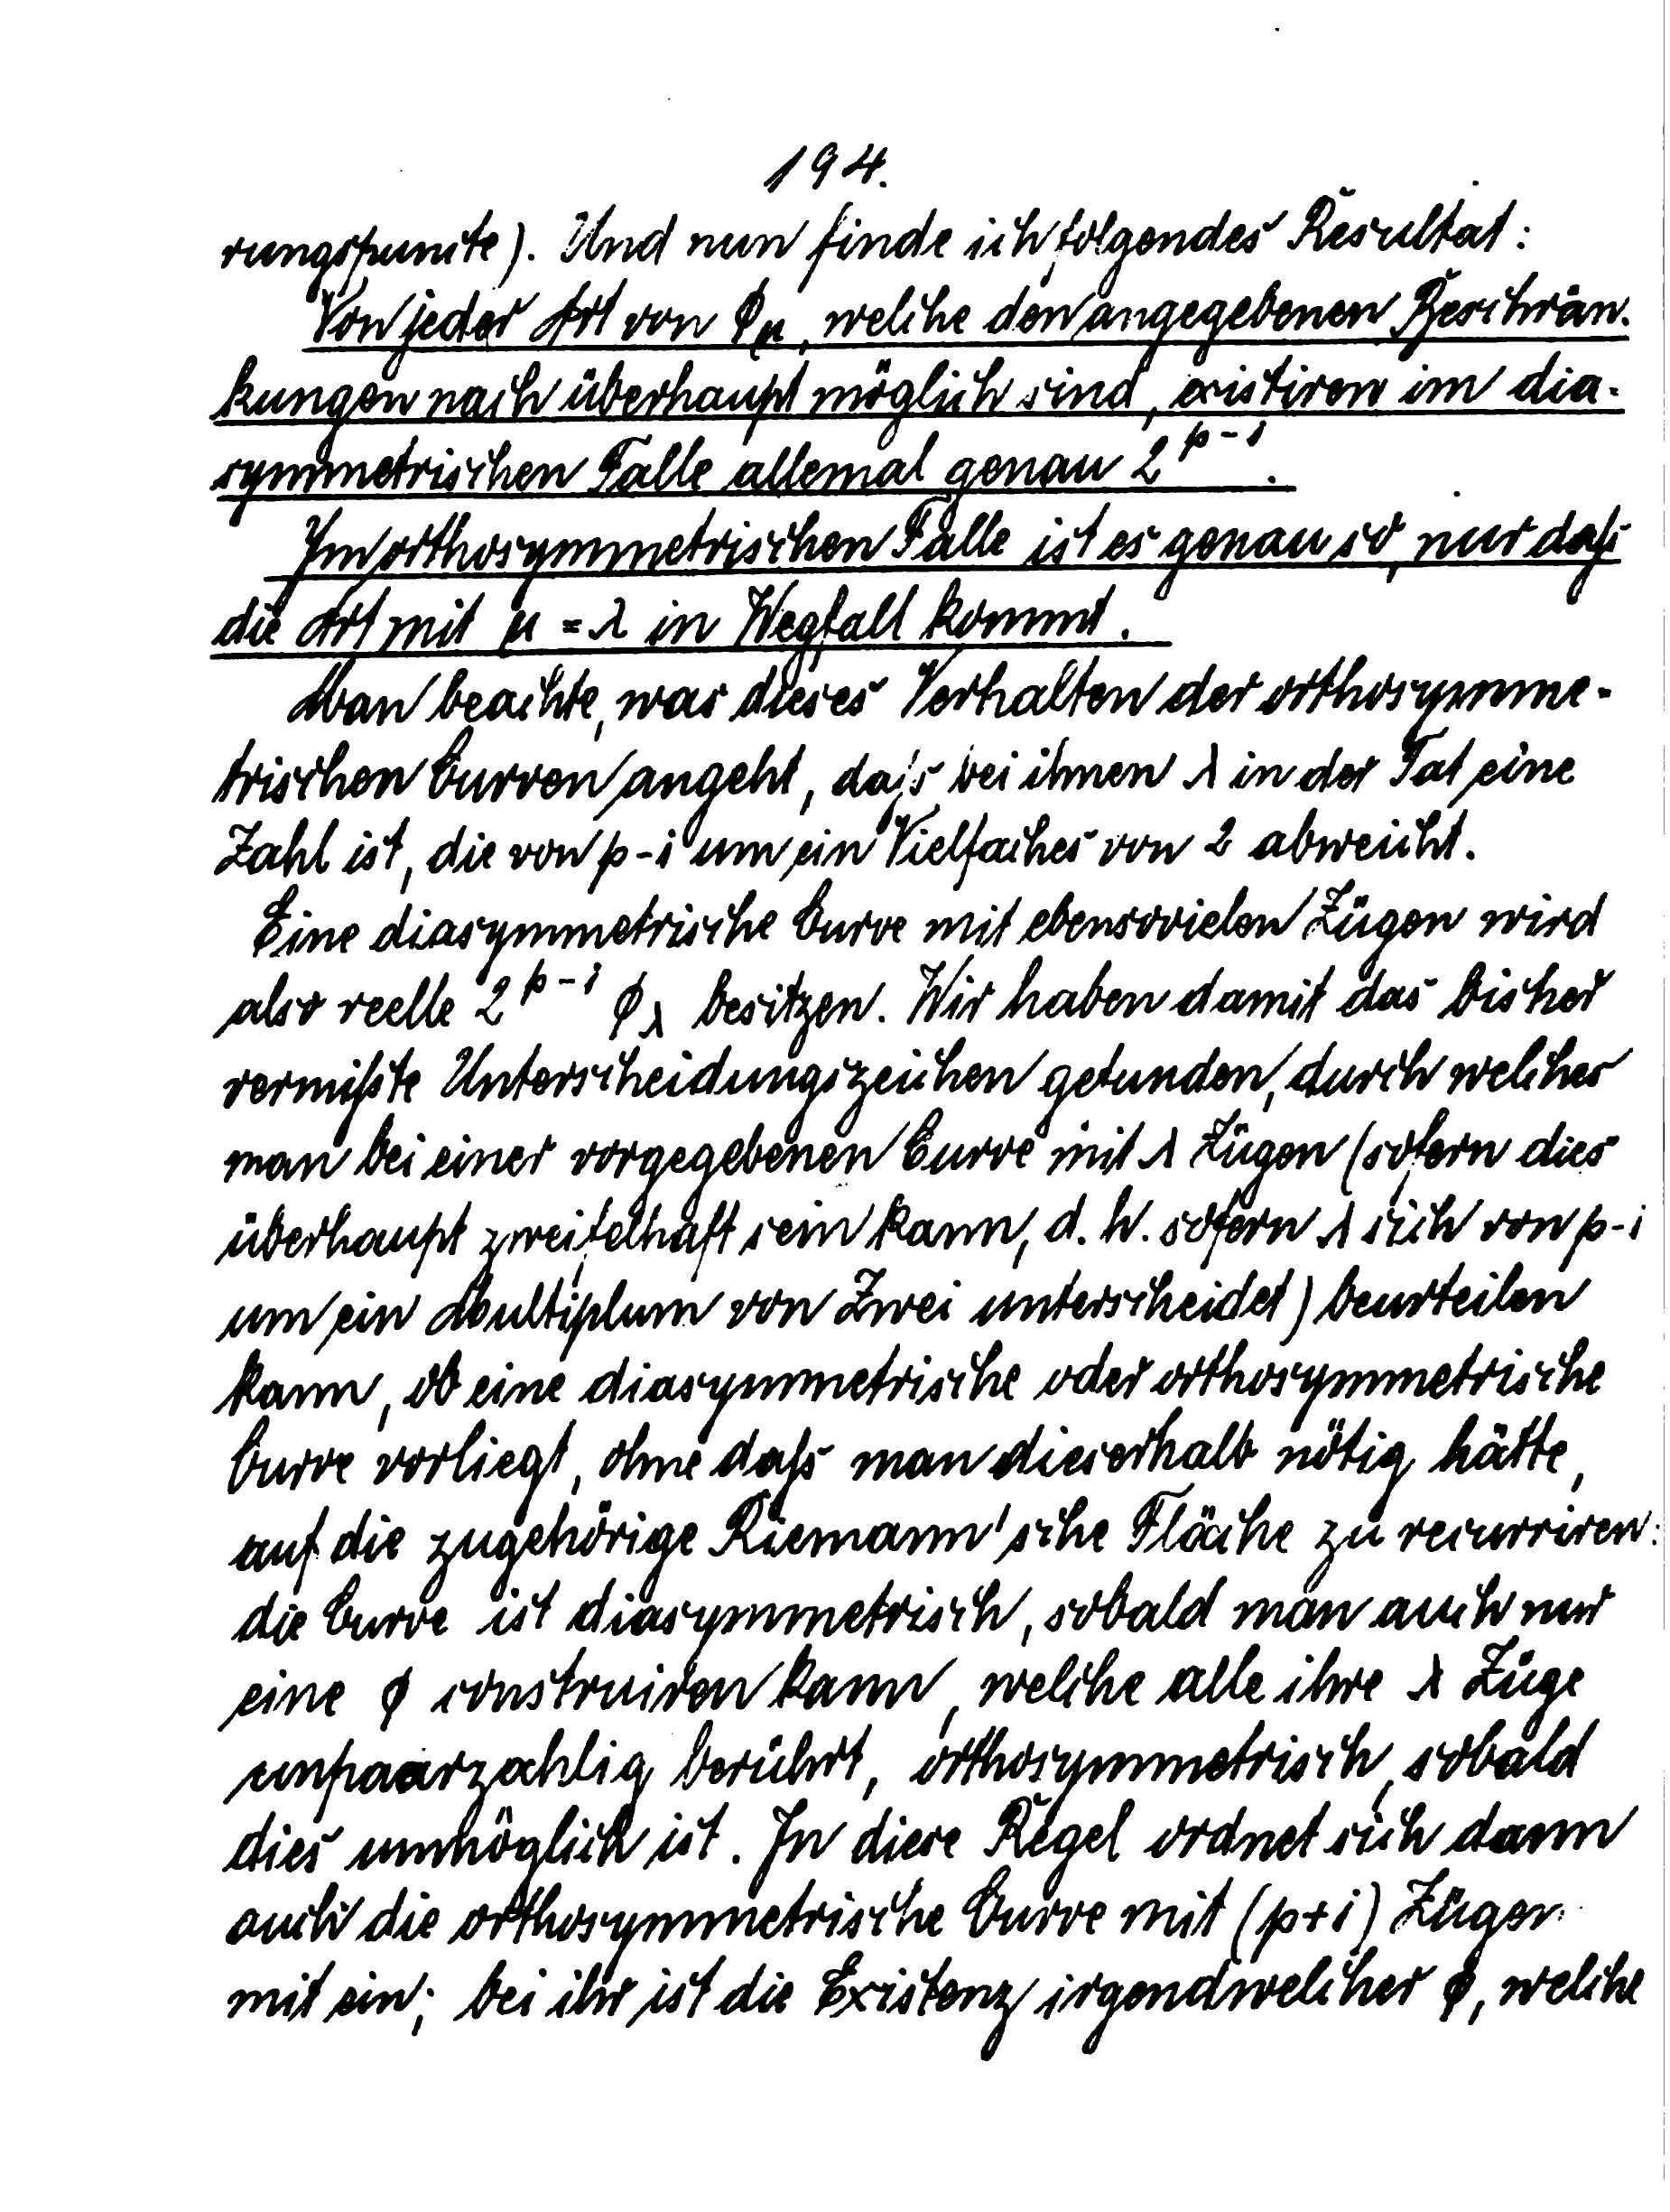 194.
rungspuncte). Und nun finde ich folgendes Resultat:
Von jeder Art von ϕ_μ, welche den angegebenen Beschrän-
kungen nach überhaupt möglich sind, existiren im dia-
symmetrischen Falle allemal genau 2^{p-1}.
Im orthosymmetrischen Falle ist es genau so, nur daß
die Art mit μ = λ in Wegfall kommt.
Man beachte, was dieses Verhalten der orthosymme-
trischen Curven angeht, daß bei ihnen λ in der Tat eine
Zahl ist, die von p-1 um ein Vielfaches von 2 abweicht.
Eine diasymmetrische Curve mit ebensovielen Zügen wird
also reelle 2^{p-1} ϕ_λ besitzen. Wir haben damit das bisher
vermißte Unterscheidungszeichen gefunden, durch welches
man bei einer vorgegebenen Curve mit λ Zügen (sofern dies
überhaupt zweifelhaft sein kann, d. h. sofern λ sich von p-1
um ein Multiplum von Zwei unterscheidet) beurteilen
kann, ob eine diasymmetrische oder orthosymmetrische
Curve vorliegt, ohne daß man dieserhalb nötig hätte,
auf die zugehörige Riemann'sche Fläche zu recurriren:
die Curve ist diasymmetrisch, sobald man auch nur
eine ϕ construiren kann, welche alle ihre λ Züge
unpaarzahlig berührt, orthosymmetrisch, sobald
dies unmöglich ist. In diese Regel ordnet sich dann
auch die orthosymmetrische Curve mit (p+1) Zügen
mit ein; bei ihr ist die Existenz irgendwelcher ϕ, welche